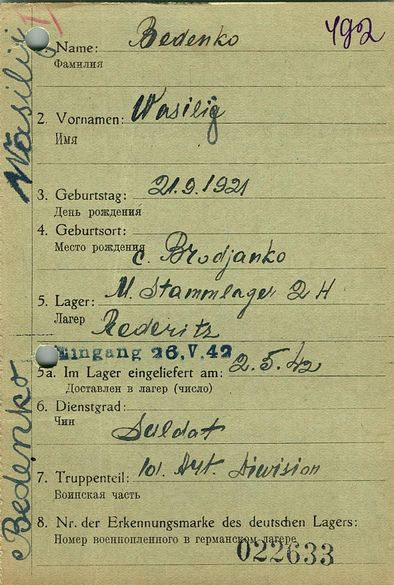 Wasilij
Bedenko
492
1. Name: Bedenko
Фамилия
2. Vornamen: Wasilij
Имя
3. Geburtstag: 21.9.1921
День рождения
4. Geburtsort:
Место рождения c. Brodjanko
5. Lager: M. Stammlager 2 H
Лагер Rederitz
Eingang 26.V.42
5a. Im Lager eingeliefert am: 2.5.42
Доставлен в лагер (число)
6. Dienstgrad:
Чин Soldat
7. Truppenteil: 101. Art. Division
Воинская часть
8. Nr. der Erkennungsmarke des deutschen Lagers:
Номер военнопленного в германском лагере
022633